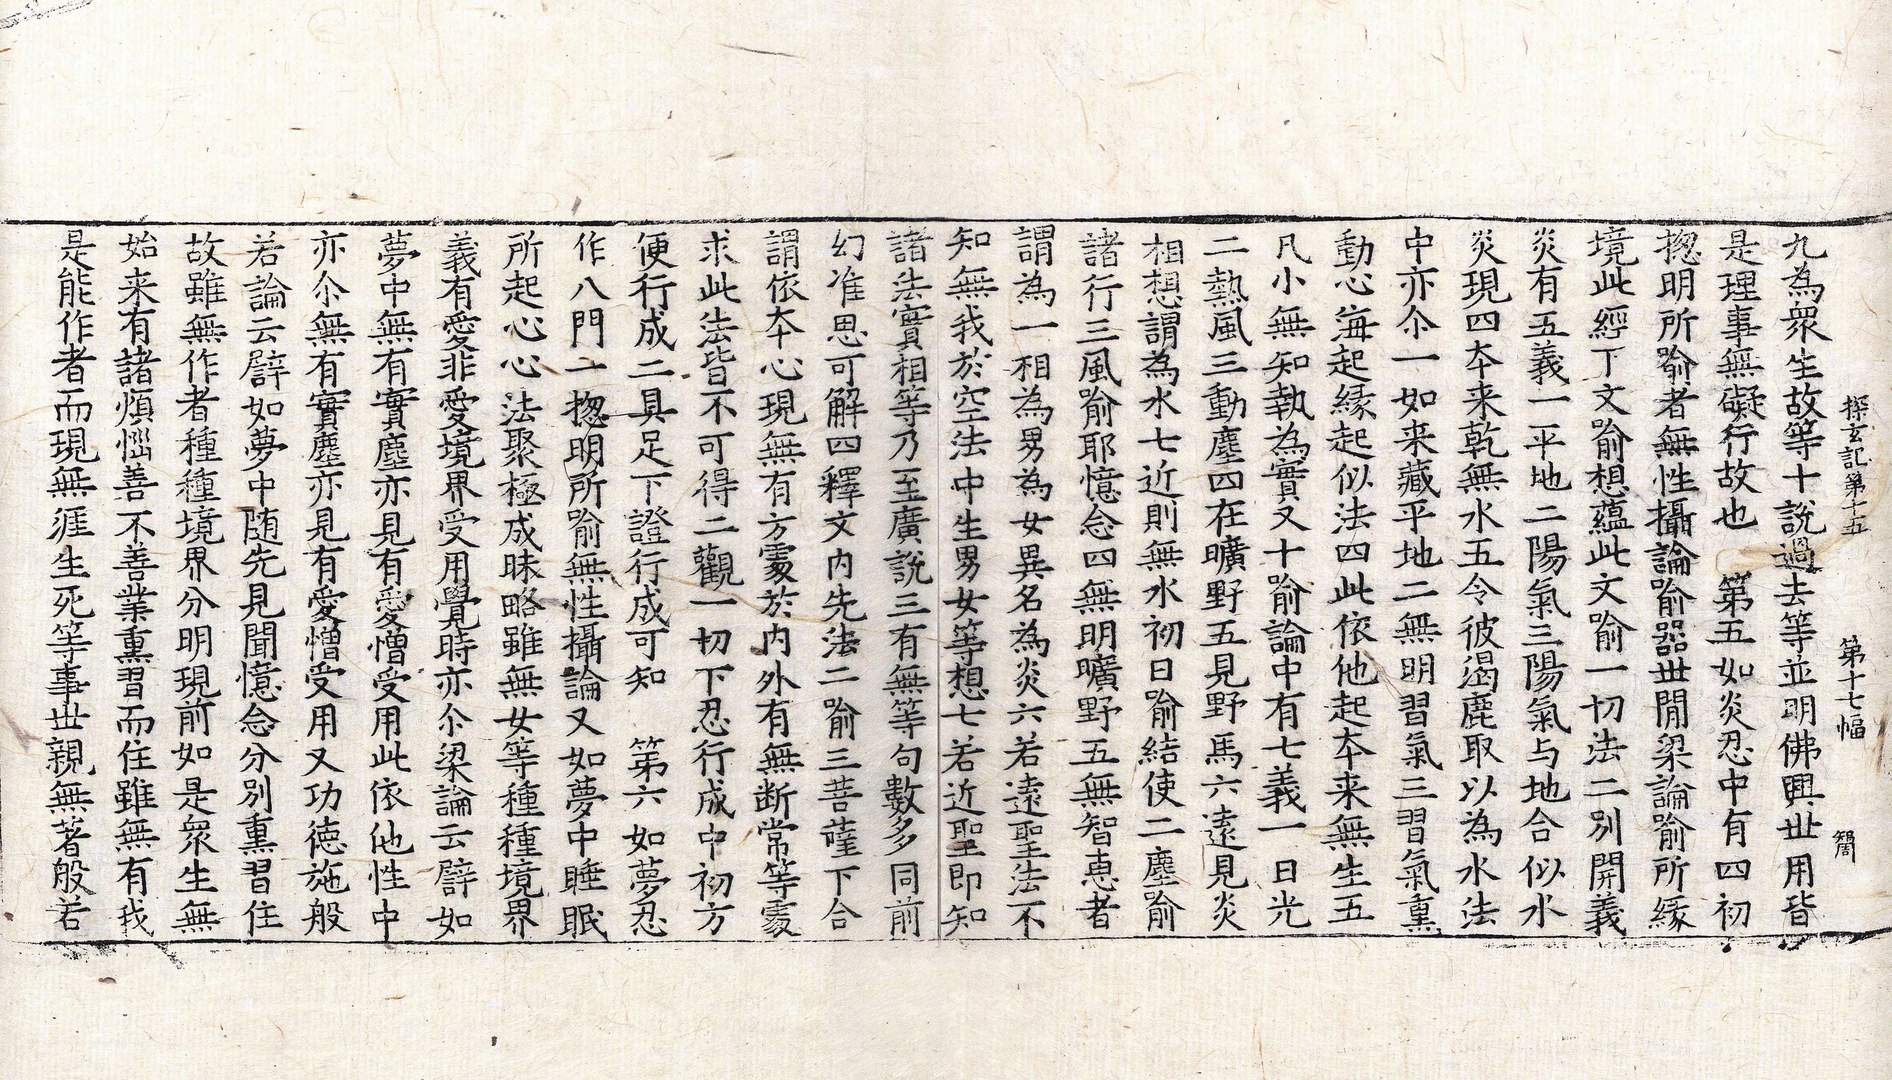 探玄記第十五　第十七幅　𥳑
九為衆生故等十說過去等並明佛興世用皆
是理事無礙行故也　第五如炎忍中有四初
揔明所喻者無性攝論喻器世間梁論喻所緣
境此經下文喻想蘊此文喻一切法二別開義
炎有五義一平地二陽氣三陽氣与地合似水
炎現四夲来乾無水五令彼渴鹿取以為水法
中亦尒一如来藏平地二無明習氣三習氣熏
動心海起緣起似法四此依他起夲来無生五
凡小無知執為實又十喻論中有七義一日光
二熱風三動塵四在曠野五見野馬六遠見炎
相想謂為水七近則無水初日喻結使二塵喻
諸行三風喻耶憶念四無明曠野五無智恵者
謂為一相為男為女異名為炎六若遠聖法不
知無我於空法中生男女等想七若近聖即知
諸法實相等乃至廣說三有無等句數多同前
幻准思可解四釋文内先法二喻三菩薩下合
謂依夲心現無有方處於内外有無断常等處
求此法皆不可得二觀一切下忍行成中初方
便行成二具足下證行成可知　第六如夢忍
作八門一揔明所喻無性攝論又如夢中睡眠
所起心心法聚極成昧略雖無女等種種境界
義有愛非愛境界受用覺時亦尒梁論云譬如
夢中無有實塵亦見有愛憎受用此依他性中
亦尒無有實塵亦見有愛憎受用又功德施般
若論云譬如夢中随先見聞憶念分別熏習住
故雖無作者種種境界分明現前如是衆生無
始来有諸煩惱善不善業熏習而住雖無有我
是能作者而現無涯生死等事世親無著般若